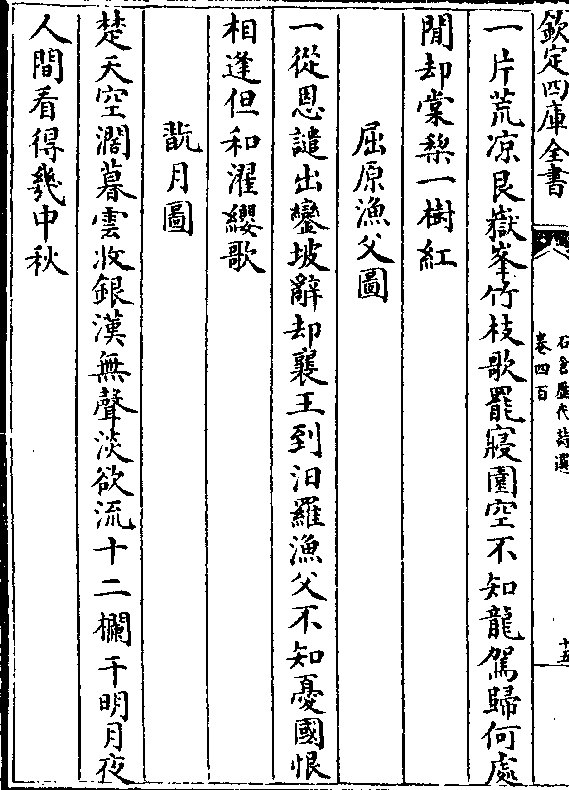 欽定四庫全書
石倉歷代詩選
卷四百
十五
一片荒凉艮嶽峯竹枝歌罷寢園空不知龍駕歸何處
閒却棠梨一樹紅
屈原漁父圖
一從恩譴出鑾坡辭却襄王到汨羅漁父不知憂國恨
相逢但和濯纓歌
翫月圖
楚天空濶暮雲收銀漢無聲淡欲流十二欄干明月夜
人間看得幾中秋